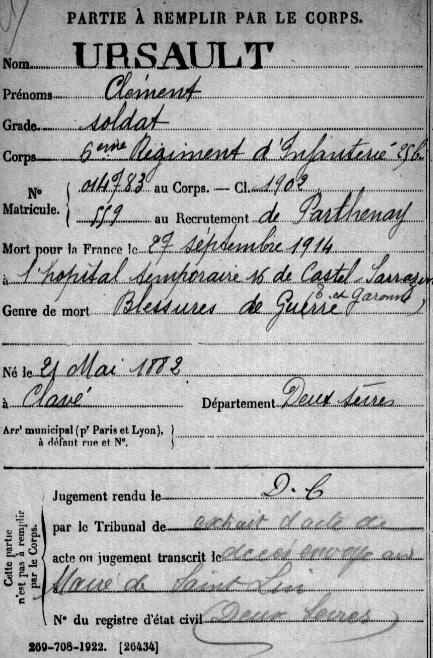 PARTIE À REMPLIR PAR LE CORPS.
Nom URSAULT
Prénoms Clément
Grade soldat
Corps 6eme Régiment d'Infanterie 25b.
N° Matricule. { 014783 au Corps. — Cl. 1902
559 au Recrutement de Parthenay
Mort pour la France le 27 septembre 1914
à l'hopital temporaire 15 de Castel-Sarrazin
Genre de mort Blessures de Guerre (T. et Garonne)
Né le 21 Mai 1882
à Clavé Département Deux Sèvres
Arrt municipal (pr Paris et Lyon), à défaut rue et N°. }
Cette partie n'est pas à remplir par le Corps.
Jugement rendu le D. C
par le Tribunal de extrait d'acte de
acte ou jugement transcrit le décès envoyé au
Maire de Saint Lin
N° du registre d'état civil (Deux Sevres)
269-708-1922. [26434]